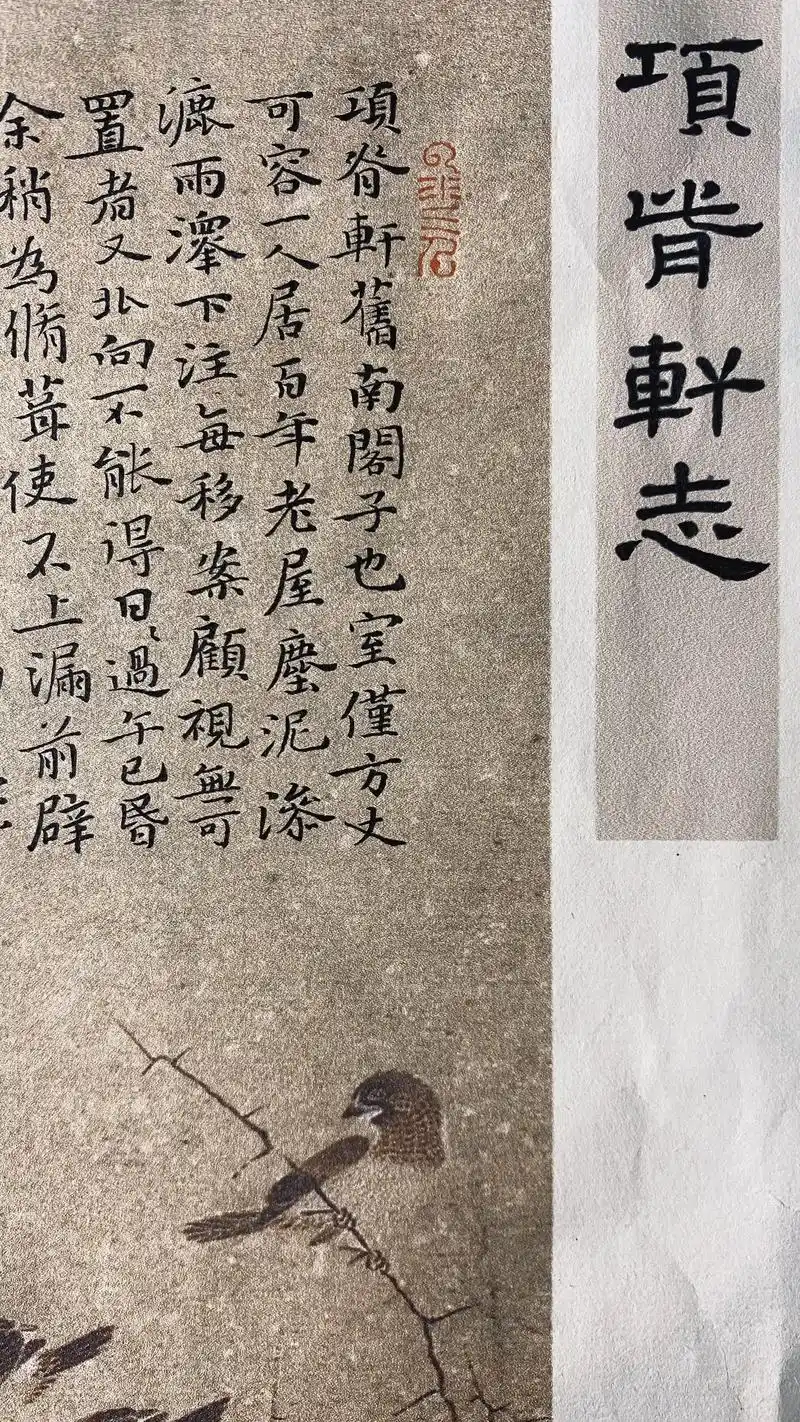 項脊軒志
項脊軒舊南閣子也室僅方丈
可容一人居百年老屋塵泥滲
漉雨澤下注每移案顧視無可
置者又北向不能得日〻過午已昬
余稍為脩葺使不上漏前辟